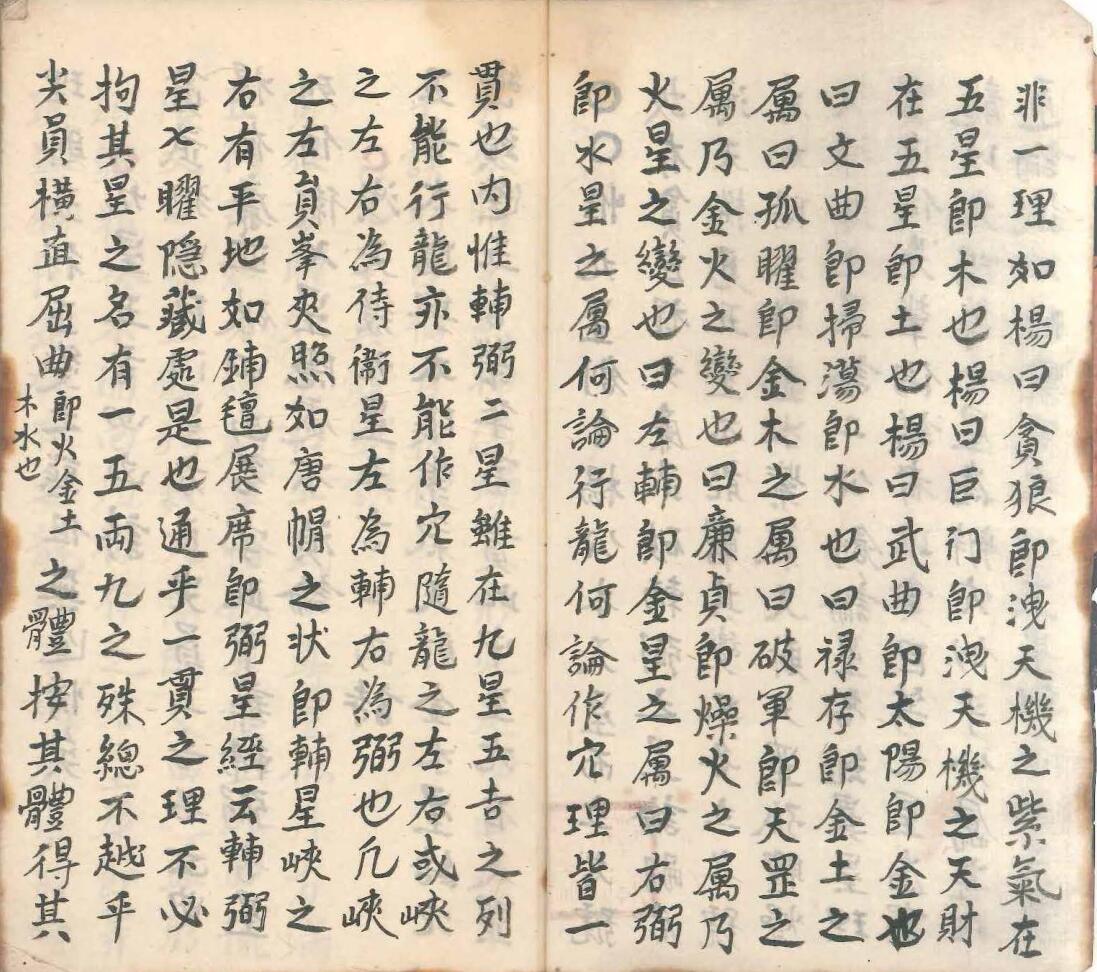 非一理如楊曰貪狼即洩天機之紫氣在
五星即木也楊曰巨门即洩天機之天財
在五星即土也楊曰武曲即太陽即金也
曰文曲即掃蕩即水也曰禄存即金土之
属曰孤曜即金木之属曰破軍即天罡之
属乃金火之變也曰廉貞即燥火之属乃
火星之變也曰左輔即金星之属曰右弼
即水星之属何論行龍何論作穴理皆一
貫也内惟輔弼二星雖在九星五吉之列
不能行龍亦不能作穴隨龍之左右或峽
之左右為侍衞星左為輔右為弼也凢峽
之左右員峯夾照如唐帽之状即輔星峽之
右有平地如鋪氊展席即弼星經云輔弼
星七曜隱藏處是也通乎一貫之理不必
拘其星之名有一五両九之殊總不越乎
尖員横直屈曲即火金土木水也之體按其體得其